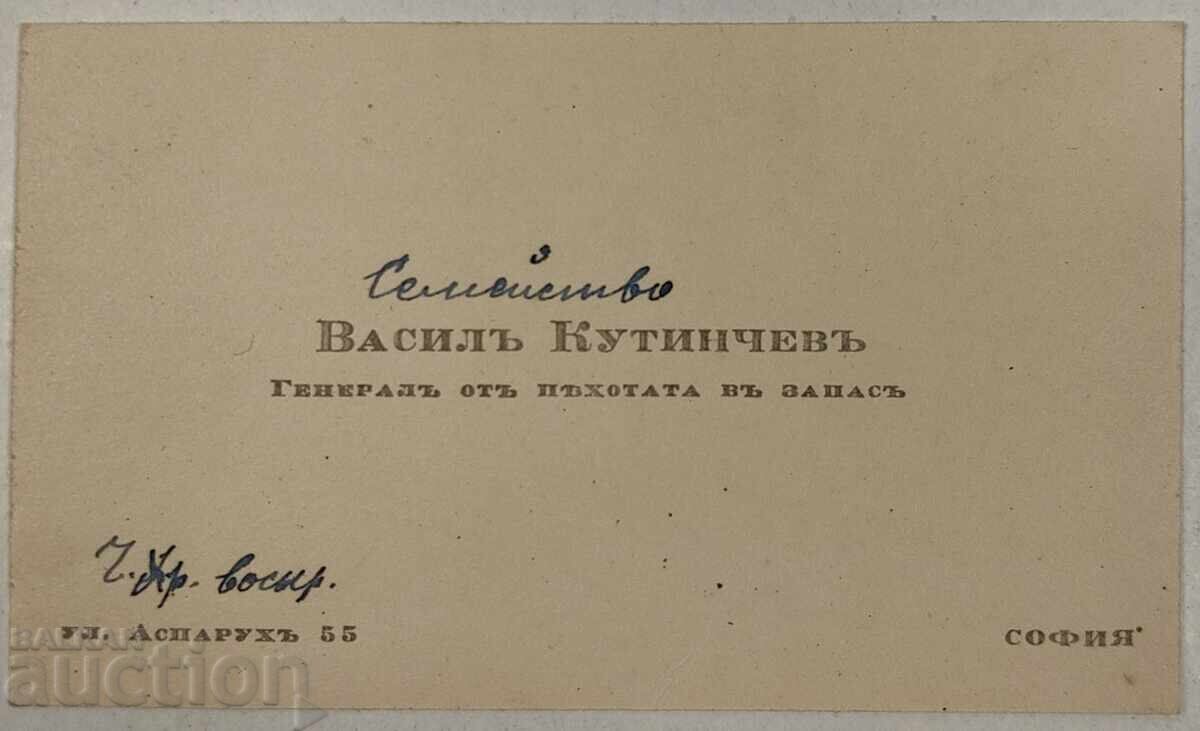 Семейство
Василъ Кутинчевъ
Генералъ отъ пѣхотата въ запасъ
Ч. Хр. воскр.
ул. Аспарухъ 55
София
BALKAN
auction